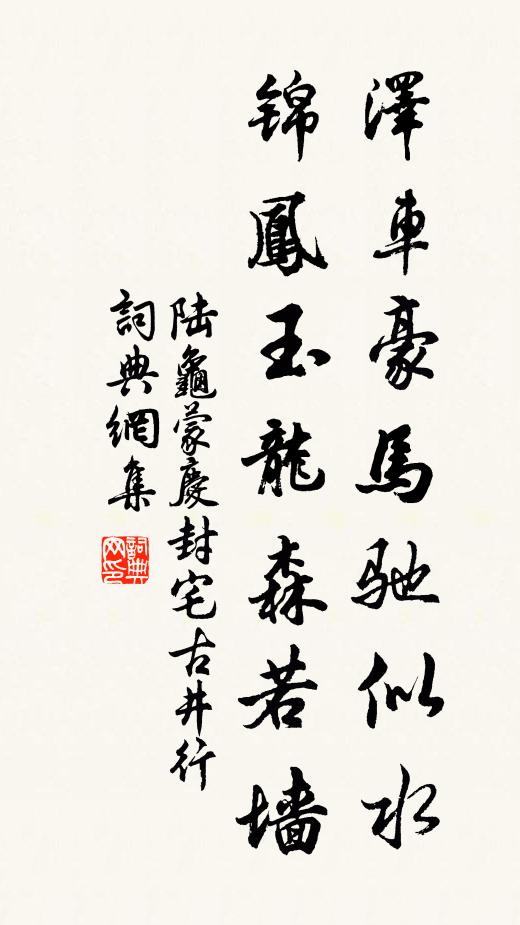 澤車豪馬馳似水
锦鳳玉龍森若墙
陆龜蒙慶封宅古井行
詞典網集
詞典
网印